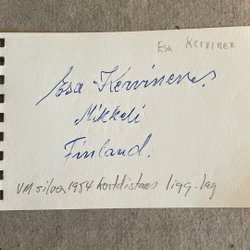 Esa Kervinen
Esa Kervinen.
Mikkeli
Finland.
VM silver 1954 kortdistans ligg. lag